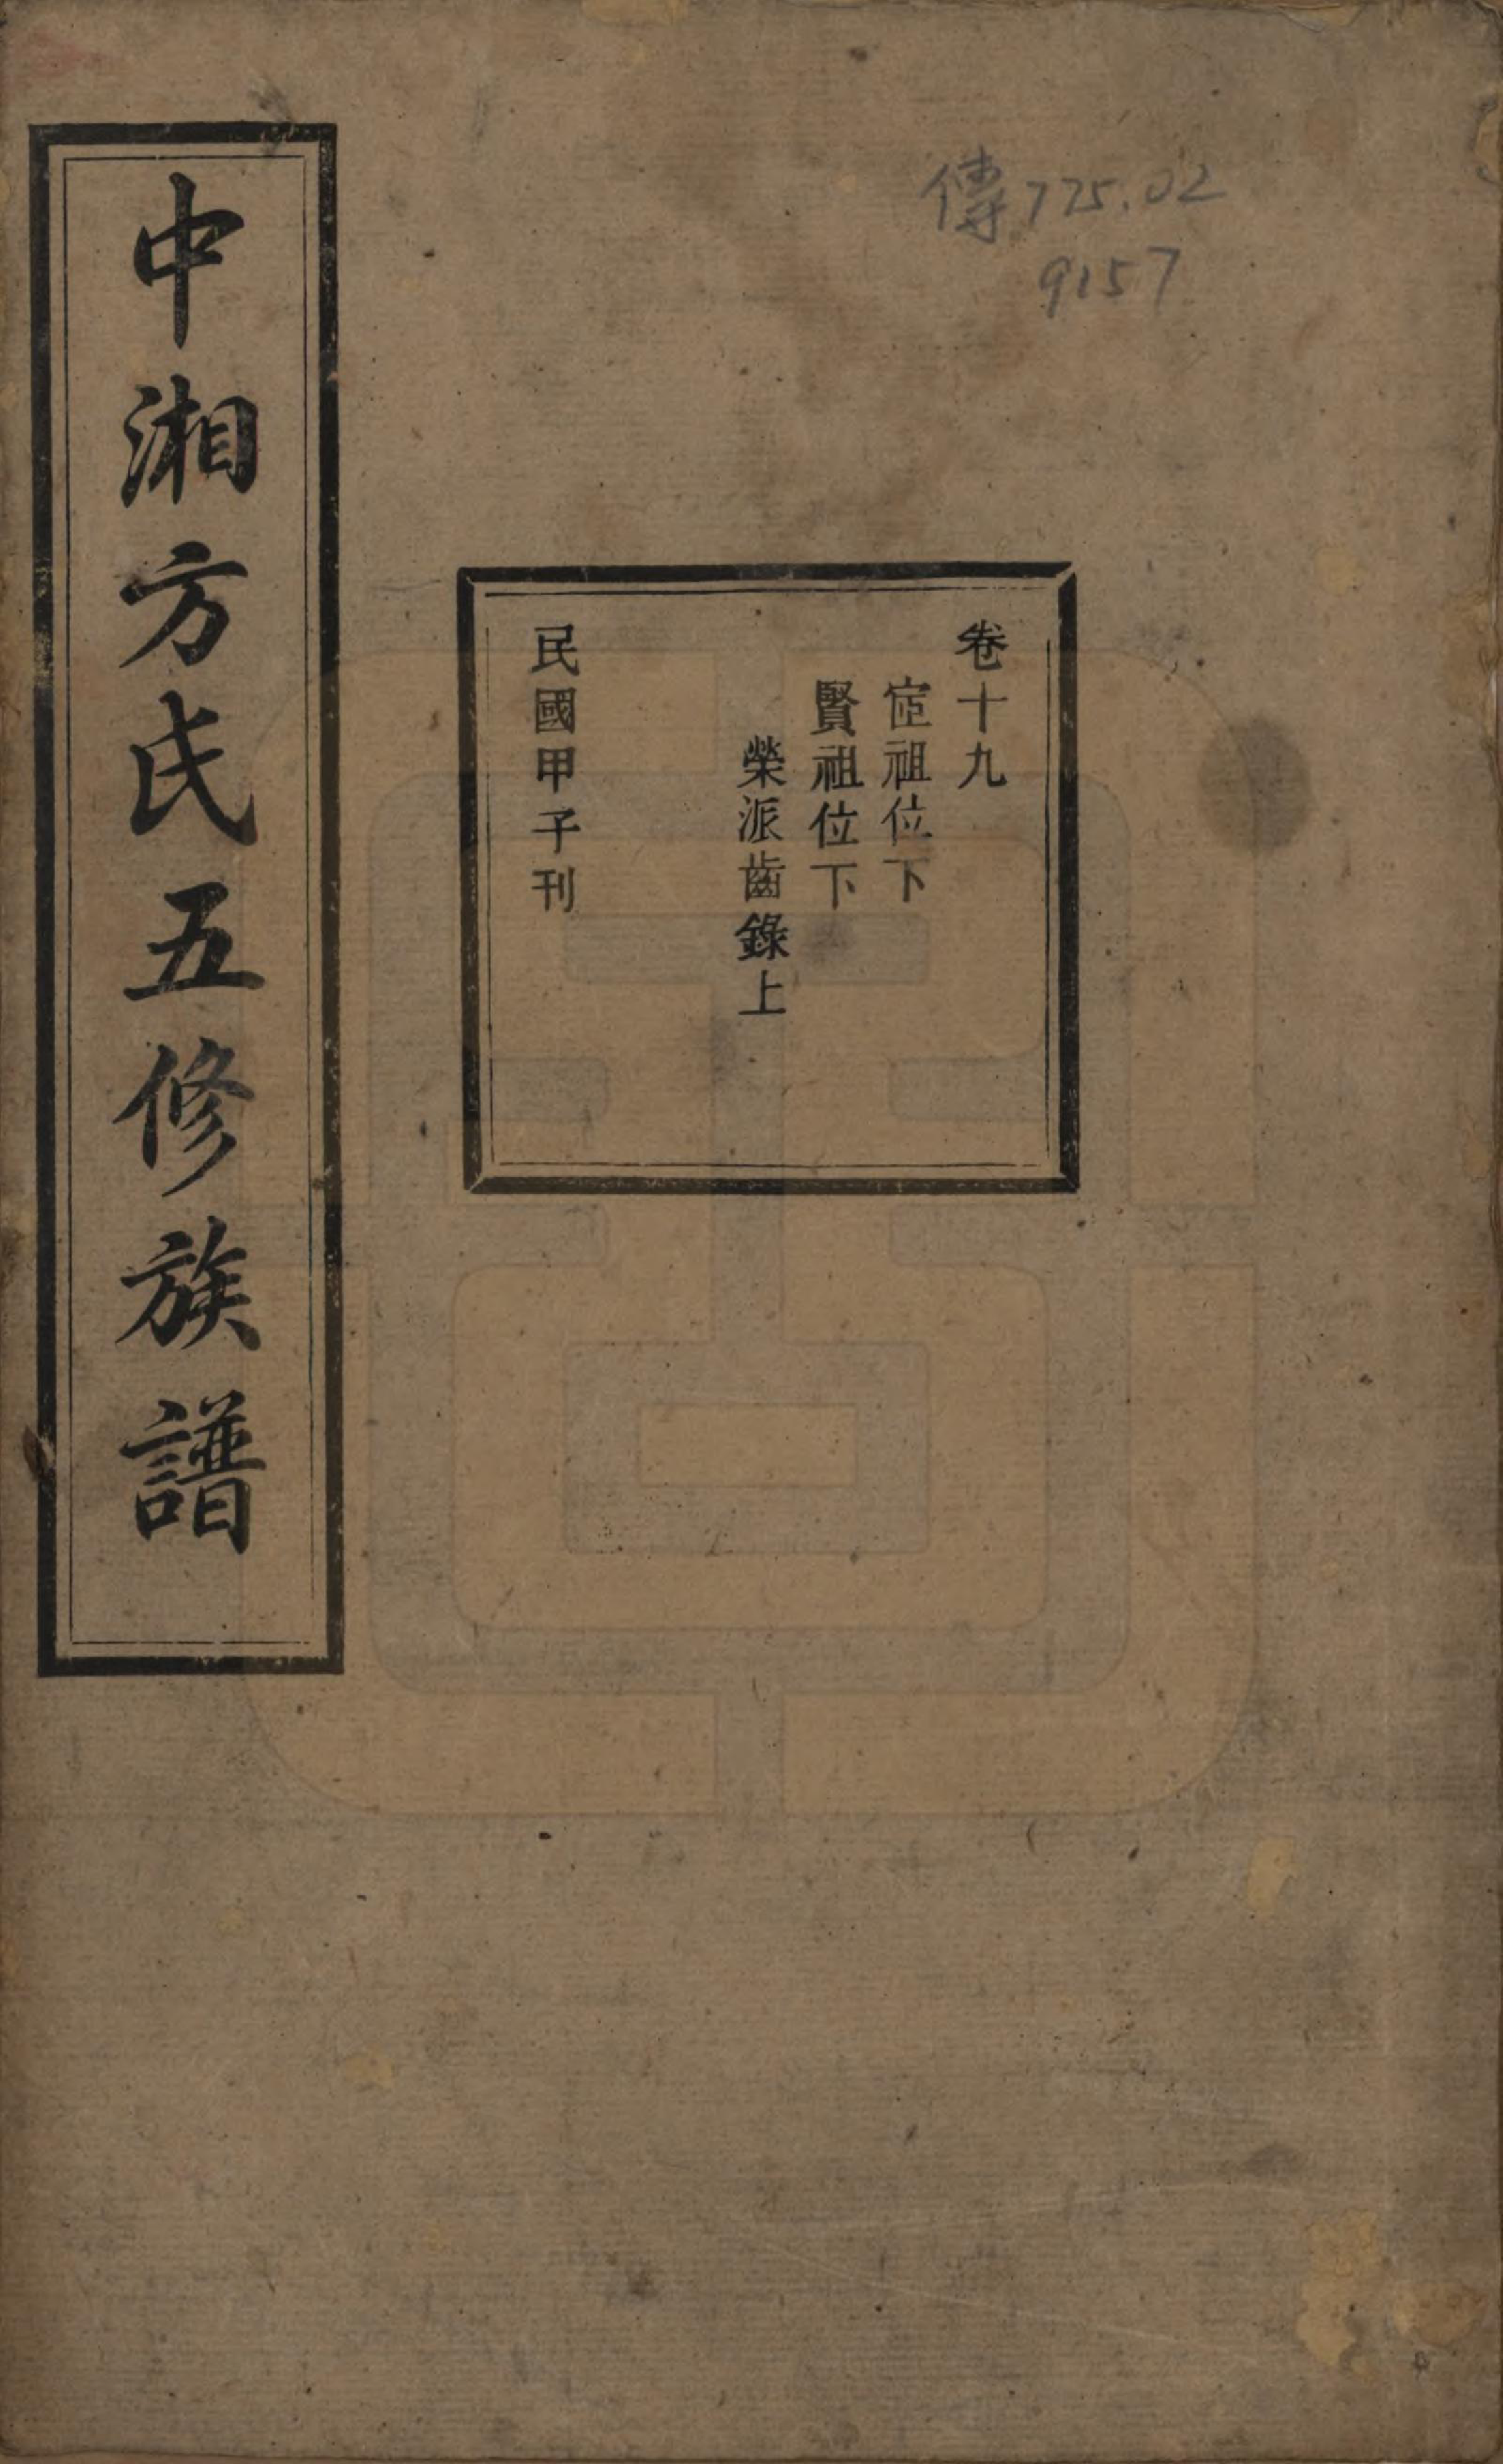 傳775.02
9157
卷十九
㝎祖位下
賢祖位下
榮派齒錄上
民國甲子刊
中湘方氏五修族譜